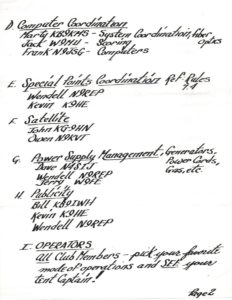 D. Computer Coordination
Marty KB9KMS - System Coordination, Fiber
Jack W9MU - Scoring Optics
Frank N9JSG - Computers
E. Special Points Coordination Ref Rules
Wendell N9REP 7.4
Kevin K9HE
F. Satellite
John KG9HN
Owen N9KVT
G. Power Supply Management, Generators,
Dave N4SIJ Power Cords,
Wendell N9REP Gas, etc.
Jerry W9HE
H. Publicity
Bill KB9IWH
Kevin K9HE
Wendell N9REP
I. OPERATORS
All Club Members - pick your favorite
mode of operations and SEE your
tent Captain!
Page 2